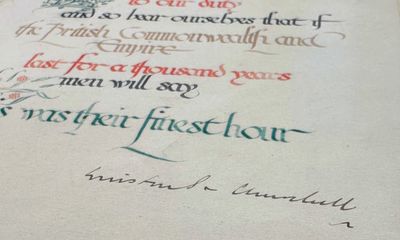 to our duty
and so bear ourselves that if
the British Commonwealth and
Empire
last for a thousand years
men will say
s was their finest hour
Winston S. Churchill